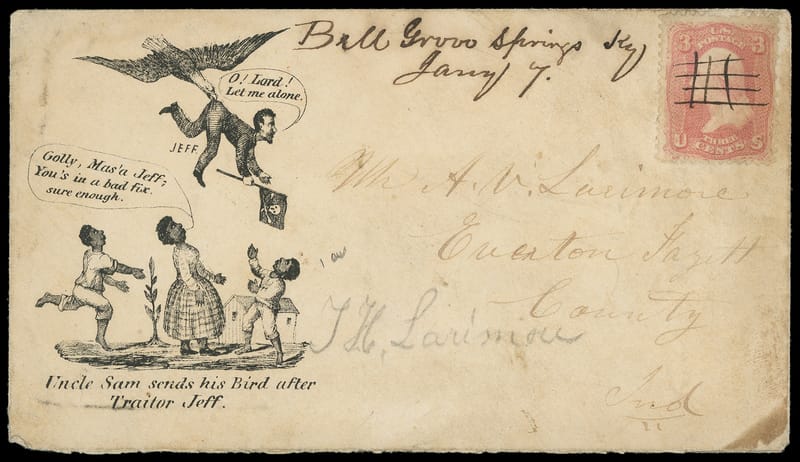 Bell Grove Springs Ky
Jany 7.
3 U.S. 3
POSTAGE
U THREE S
CENTS
O! Lord!
Let me alone.
JEFF
Golly, Mas'a Jeff;
You's in a bad fix.
sure enough.
Mr A. V. Larimore
Everton Fayett
County
Ind
T. H. Larimore
Uncle Sam sends his Bird after
Traitor Jeff.